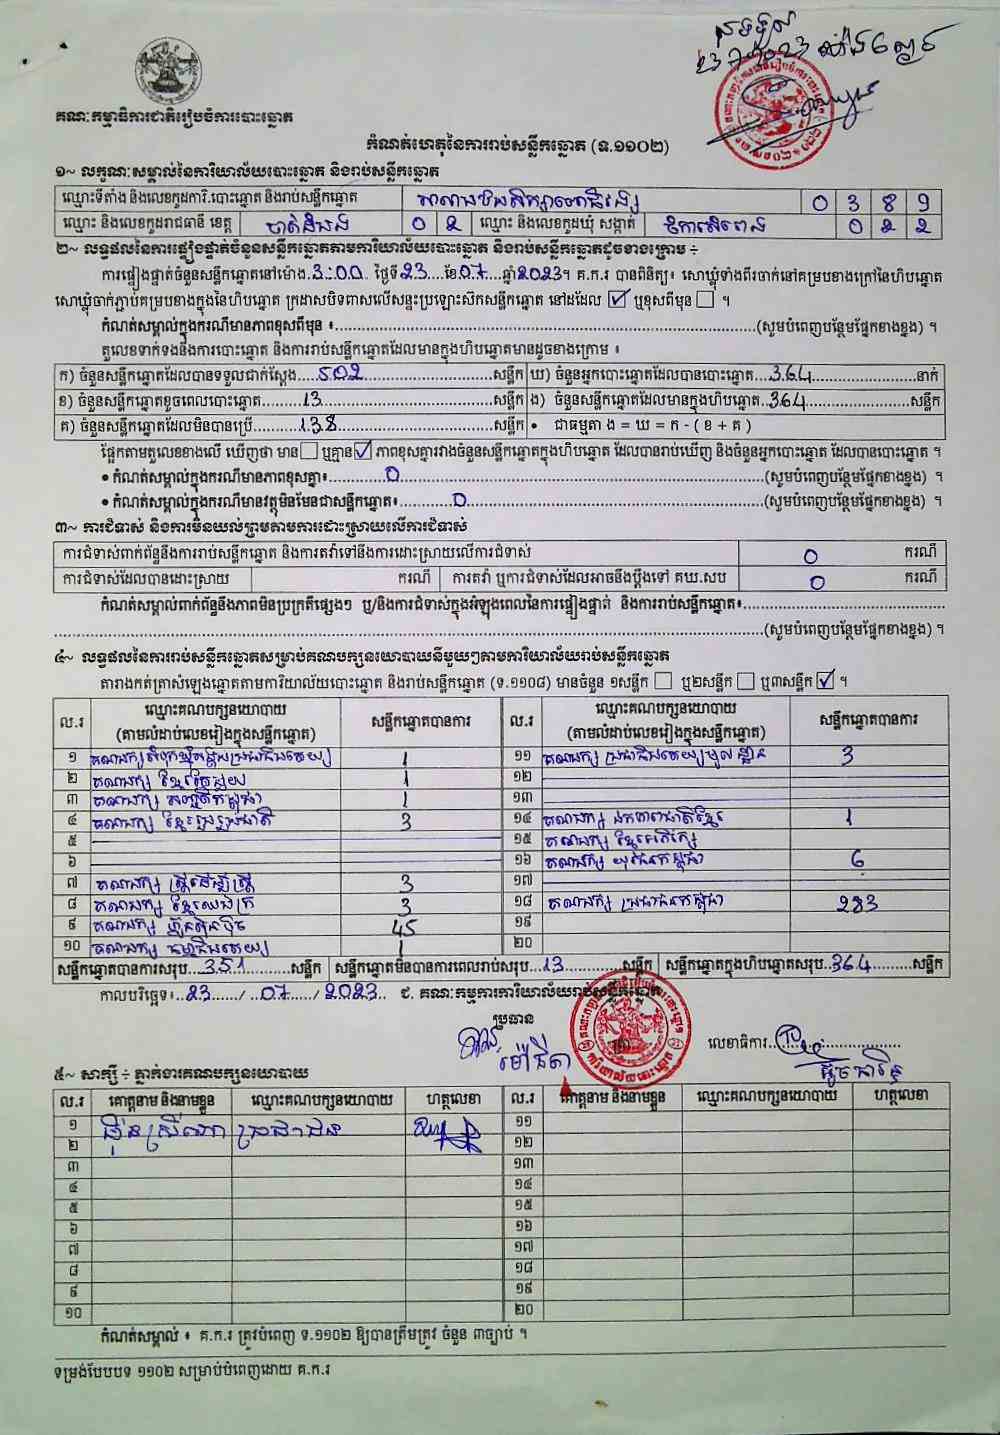 ទទួល
23 7 2023
គណៈកម្មាធិការជាតិរៀបចំការបោះឆ្នោត
កំណត់ហេតុនៃការរាប់សន្លឹកឆ្នោត (ទ.១១០២)
១~ លក្ខណៈសម្គាល់នៃការិយាល័យបោះឆ្នោត និងរាប់សន្លឹកឆ្នោត
ឈ្មោះទីតាំង និងលេខកូដការិ.បោះឆ្នោត និងរាប់សន្លឹកឆ្នោត 0 3 8 9
ឈ្មោះ និងលេខកូដរាជធានី ខេត្ត បាត់ដំបង 0 2 ឈ្មោះ និងលេខកូដឃុំ សង្កាត់ 0 2 2
២~ លទ្ធផលនៃការផ្ទៀងផ្ទាត់ចំនួនសន្លឹកឆ្នោតតាមការិយាល័យបោះឆ្នោត និងរាប់សន្លឹកឆ្នោតដូចខាងក្រោម ៖
ការផ្ទៀងផ្ទាត់ចំនួនសន្លឹកឆ្នោតនៅម៉ោង.3:00 ថ្ងៃទី23....ខែ.07....ឆ្នាំ2023។ គ.ក.រ បានពិនិត្យ៖ សោឃ្លុំទាំងពីរចាក់នៅគម្របខាងក្រៅនៃហិបឆ្នោត
សោឃ្លុំចាក់ភ្ជាប់គម្របខាងក្នុងនៃហិបឆ្នោត ក្រដាសបិទពាសលើសន្ទះប្រឡោះស៊កសន្លឹកឆ្នោត នៅដដែល ☑ ឬខុសពីមុន ☐ ។
កំណត់សម្គាល់ក្នុងករណីមានភាពខុសពីមុន ៖.....(សូមបំពេញបន្ថែមផ្នែកខាងខ្នង) ។
តួលេខទាក់ទងនឹងការបោះឆ្នោត និងការរាប់សន្លឹកឆ្នោតដែលមានក្នុងហិបឆ្នោតមានដូចខាងក្រោម ៖
ក) ចំនួនសន្លឹកឆ្នោតដែលបានទទួលជាក់ស្តែង....502.....សន្លឹក ឃ) ចំនួនអ្នកបោះឆ្នោតដែលបានបោះឆ្នោត...364.....នាក់
ខ) ចំនួនសន្លឹកឆ្នោតខូចពេលបោះឆ្នោត......13.....សន្លឹក ង) ចំនួនសន្លឹកឆ្នោតដែលមានក្នុងហិបឆ្នោត..364.....សន្លឹក
គ) ចំនួនសន្លឹកឆ្នោតដែលមិនបានប្រើ......138.....សន្លឹក • ជាធម្មតា ង = ឃ = ក - ( ខ + គ )
ផ្អែកតាមតួលេខខាងលើ ឃើញថា មាន ☐ ឬគ្មាន ☑ ភាពខុសគ្នារវាងចំនួនសន្លឹកឆ្នោតក្នុងហិបឆ្នោត ដែលបានរាប់ឃើញ និងចំនួនអ្នកបោះឆ្នោត ដែលបានបោះឆ្នោត ។
• កំណត់សម្គាល់ក្នុងករណីមានភាពខុសគ្នា៖......0......(សូមបំពេញបន្ថែមផ្នែកខាងខ្នង) ។
• កំណត់សម្គាល់ក្នុងករណីមានវត្ថុមិនមែនជាសន្លឹកឆ្នោត៖......0......(សូមបំពេញបន្ថែមផ្នែកខាងខ្នង) ។
៣~ ការជំទាស់ និងការមិនយល់ព្រមតាមការដោះស្រាយលើការជំទាស់
ការជំទាស់ពាក់ព័ន្ធនឹងការរាប់សន្លឹកឆ្នោត និងការតវ៉ាទៅនឹងការដោះស្រាយលើការជំទាស់ 0 ករណី
ការជំទាស់ដែលបានដោះស្រាយ ករណី ការតវ៉ា ឬការជំទាស់ដែលអាចនឹងប្តឹងទៅ គឃ.សប 0 ករណី
កំណត់សម្គាល់ពាក់ព័ន្ធនឹងភាពមិនប្រក្រតីផ្សេងៗ ឬ/និងការជំទាស់ក្នុងអំឡុងពេលនៃការផ្ទៀងផ្ទាត់ និងការរាប់សន្លឹកឆ្នោត៖.....
.....(សូមបំពេញបន្ថែមផ្នែកខាងខ្នង) ។
៤~ លទ្ធផលនៃការរាប់សន្លឹកឆ្នោតសម្រាប់គណបក្សនយោបាយនីមួយៗតាមការិយាល័យរាប់សន្លឹកឆ្នោត
តារាងកត់ត្រាសំឡេងឆ្នោតតាមការិយាល័យបោះឆ្នោត និងរាប់សន្លឹកឆ្នោត (ទ.១១០៨) មានចំនួន ១សន្លឹក ☐ ឬ២សន្លឹក ☐ ឬ៣សន្លឹក ☑ ។
ល.រ ឈ្មោះគណបក្សនយោបាយ (តាមលំដាប់លេខរៀងក្នុងសន្លឹកឆ្នោត) សន្លឹកឆ្នោតបានការ ល.រ ឈ្មោះគណបក្សនយោបាយ (តាមលំដាប់លេខរៀងក្នុងសន្លឹកឆ្នោត) សន្លឹកឆ្នោតបានការ
១ គណបក្ស សំបុកឃ្មុំសង្គមប្រជាធិបតេយ្យ 1 ១១ គណបក្ស ប្រជាធិបតេយ្យមូលដ្ឋាន 3
២ គណបក្ស ខ្មែរតែមួយ 1 ១២
៣ គណបក្ស កម្ពុជា 1 ១៣
៤ គណបក្ស ខ្មែររួបរួមជាតិ 3 ១៤ គណបក្ស ឯកភាពជាតិខ្មែរ 1
៥ ១៥ គណបក្ស ខ្មែរអភិរក្ស
៦ ១៦ គណបក្ស យុវជនកម្ពុជា 6
៧ គណបក្ស ស្ត្រីដើម្បីស្ត្រី 3 ១៧
៨ គណបក្ស ខ្មែរឈប់ក្រ 3 ១៨ គណបក្ស ប្រជាជនកម្ពុជា 283
៩ គណបក្ស ហ្វ៊ុនស៊ិនប៉ិច 45 ១៩
១០ គណបក្ស ធម្មាធិបតេយ្យ 1 ២០
សន្លឹកឆ្នោតបានការសរុប...351......សន្លឹក សន្លឹកឆ្នោតមិនបានការពេលរាប់សរុប...13......សន្លឹក សន្លឹកឆ្នោតក្នុងហិបឆ្នោតសរុប..364......សន្លឹក
កាលបរិច្ឆេទ៖..23...../..07...../ 2023.. ជ. គណៈកម្មការការិយាល័យរាប់សន្លឹកឆ្នោត
ប្រធាន
លេខាធិការ.....
៥~ សាក្សី ៖ ភ្នាក់ងារគណបក្សនយោបាយ
ល.រ គោត្តនាម និងនាមខ្លួន ឈ្មោះគណបក្សនយោបាយ ហត្ថលេខា ល.រ គោត្តនាម និងនាមខ្លួន ឈ្មោះគណបក្សនយោបាយ ហត្ថលេខា
១ ប្រជាជន ១១
២ ១២
៣ ១៣
៤ ១៤
៥ ១៥
៦ ១៦
៧ ១៧
៨ ១៨
៩ ១៩
១០ ២០
កំណត់សម្គាល់ ៖ គ.ក.រ ត្រូវបំពេញ ទ.១១០២ ឱ្យបានត្រឹមត្រូវ ចំនួន ៣ច្បាប់ ។
ទម្រង់បែបបទ ១១០២ សម្រាប់បំពេញដោយ គ.ក.រ